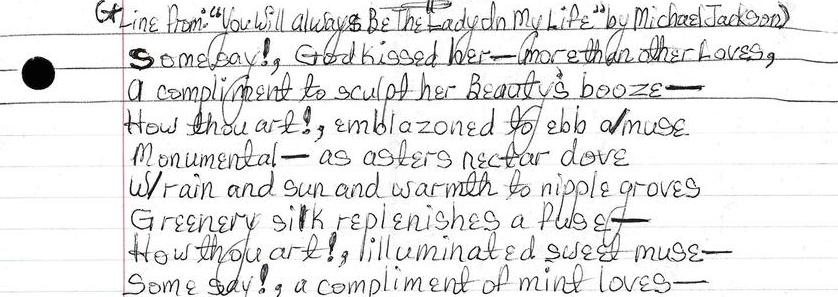 (* Line From: "You Will always Be The Lady In My Life" by Michael Jackson)
Some say!, God kissed her— more than other Loves,
a compliment to sculpt her Beauty's booze—
How thou art!, emblazoned to ebb a/muse
Monumental— as asters nectar dove
w/rain and sun and warmth to nipple groves
Greenery silk replenishes a fuse—
How thou art!, illuminated sweet muse—
Some say!, a compliment of mint loves—